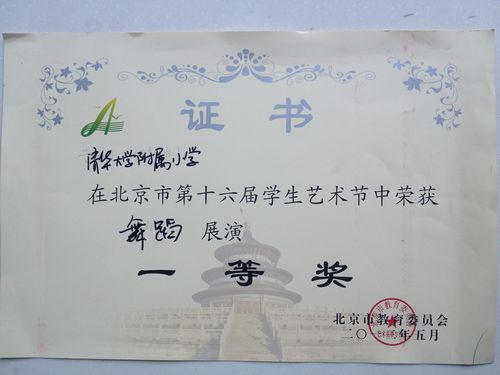 证书
清华大学附属小学
在北京市第十六届学生艺术节中荣获
舞蹈 展演
一等奖
北京市教育委员会
二〇 年五月